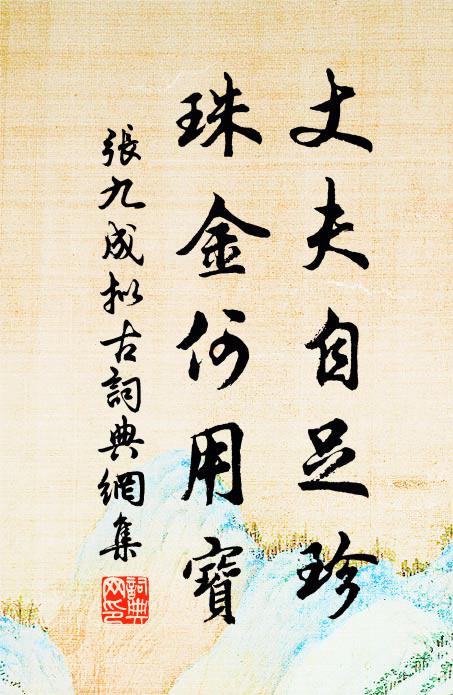 丈夫自足珍
珠金何用寶
張九成拟古詞典網集
詞典